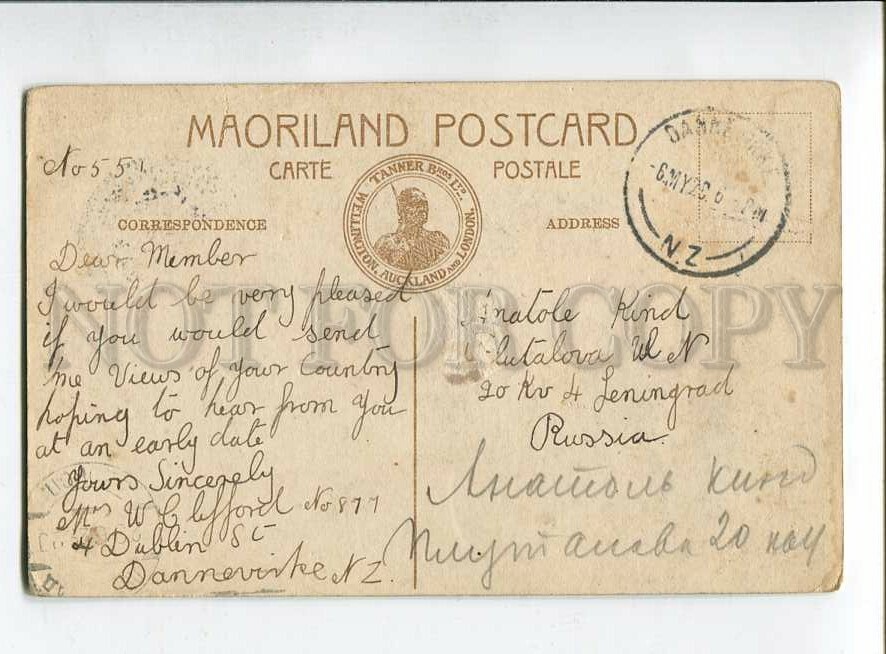 MAORILAND POSTCARD
CARTE POSTALE
TANNER BROS LTD.
WELLINGTON, AUCKLAND AND LONDON.
CORRESPONDENCE
ADDRESS
N.Z
No 551
Dear Member
I would be very pleased
if you would send
me Views of your Country
hoping to hear from you
at an early date
Yours Sincerely
Mrs W Clifford No 877
4 Dublin St
Dannevirke N Z.
Anatole Kind
Plutalova Ul N
20 Kv 4 Leningrad
Russia.
Анатоль Кинд
20
NOT FOR COPY